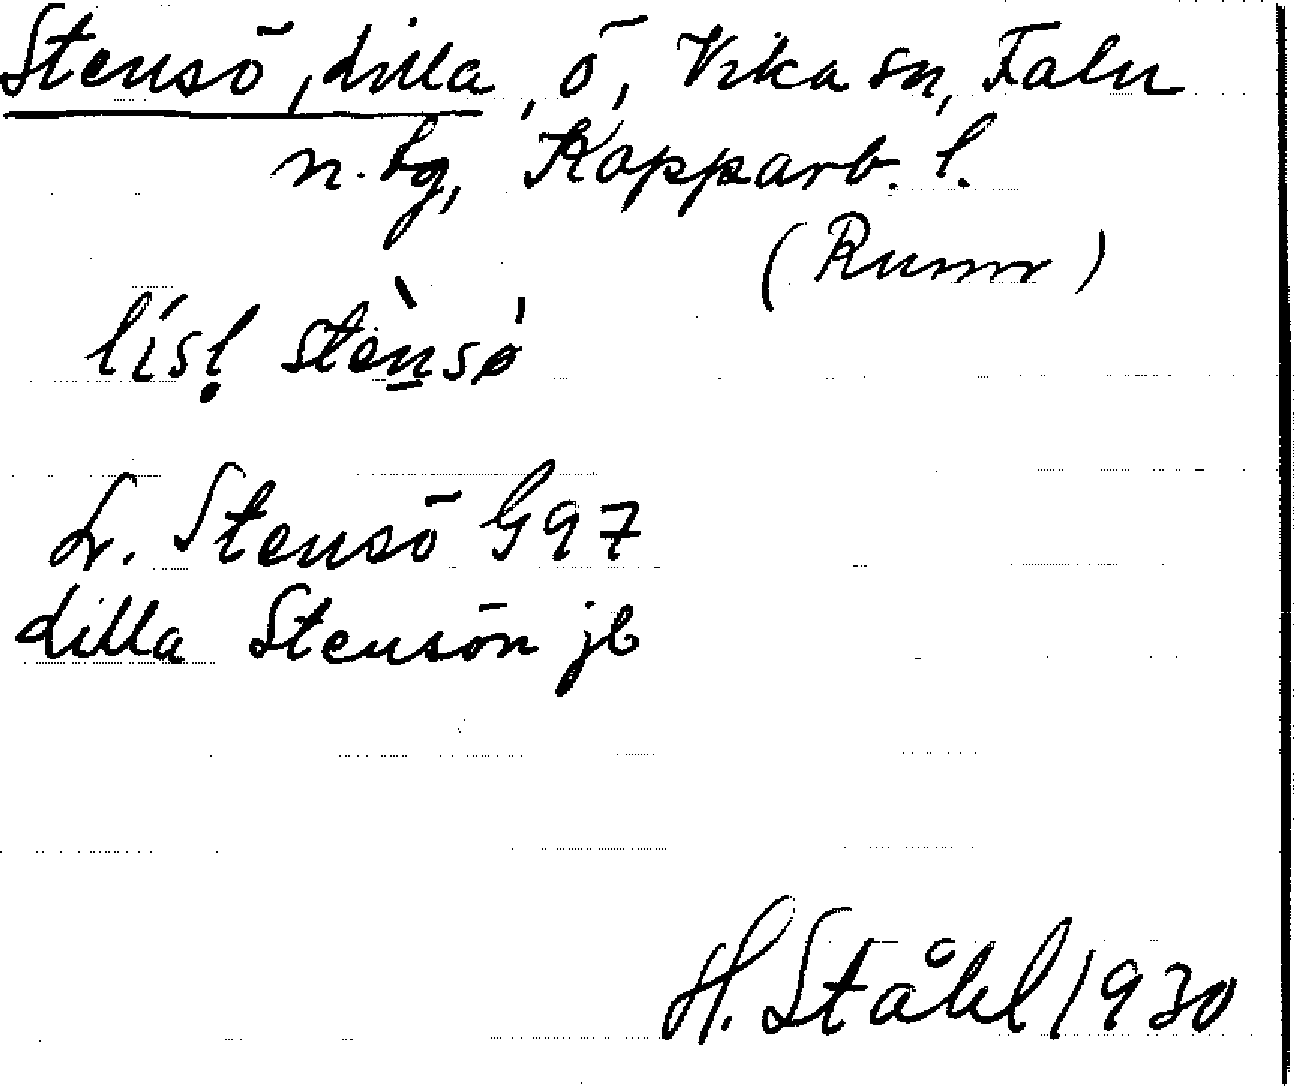 Stensö, Lilla, ö, Vika sn, Falu
n. tg, Kopparb. l.
(Runn)
lísḷ stèn̠sø̍
L. Stensö G97
Lilla Stensön jb
H. Ståhl 1930